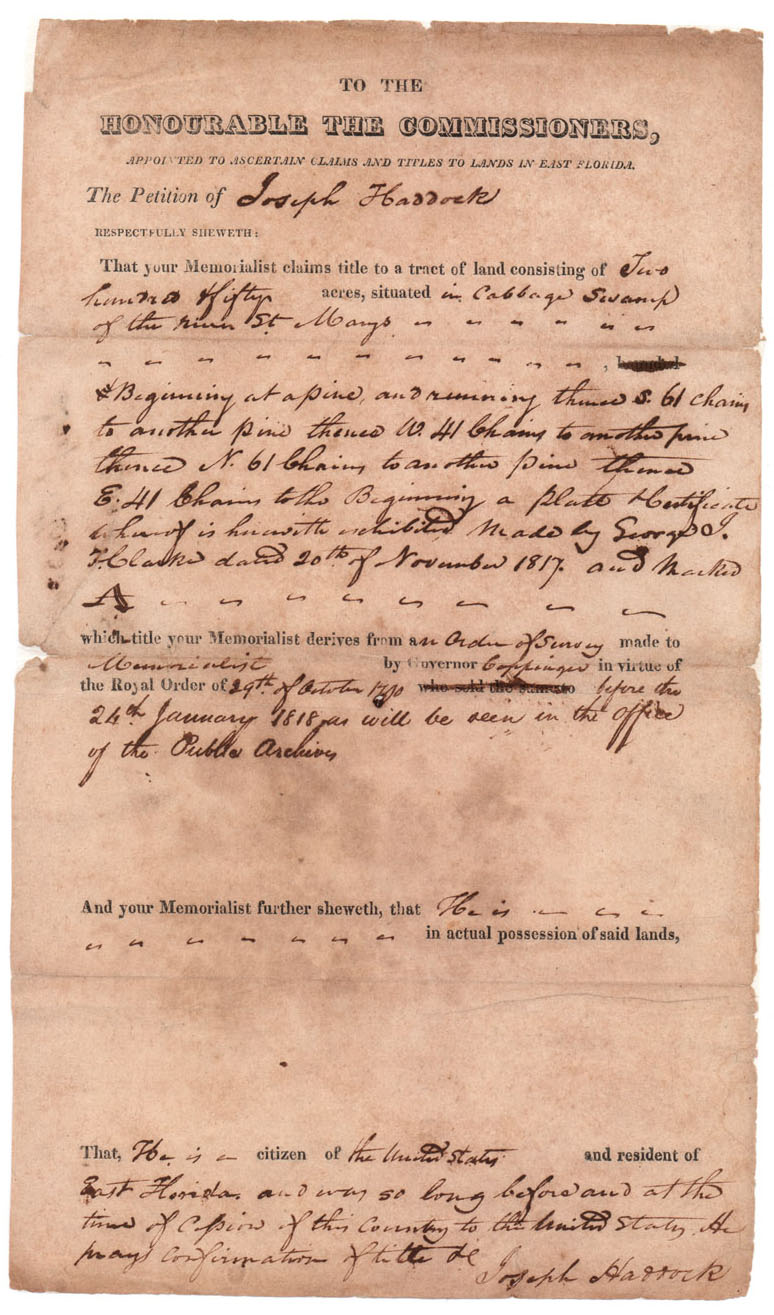 TO THE
HONOURABLE THE COMMISSIONERS,
APPOINTED TO ASCERTAIN CLAIMS AND TITLES TO LANDS IN EAST FLORIDA.
The Petition of Joseph Haddock
RESPECTFULLY SHEWETH:
That your Memorialist claims title to a tract of land consisting of Two
hundred & fifty acres, situated in Cabbage Swamp
of the river St. Marys " " " " " "
" " " " " " " " " " " ,
& Beginning at a pine, and running thence S. 61 Chains
to another pine thence W. 41 Chains to another pine
thence N. 61 Chains to another pine thence
E. 41 Chains to the Beginning a platt & Certificate
whereof is herewith exhibited made by George J.
F. Clarke dated 20th of November 1817. and Marked
A " " " " " " " " "
which title your Memorialist derives from an Order of Survey made to
Memorialist by Governor Coppinger in virtue of
the Royal Order of 29th of October 1790 who sold the same to before the
24th January 1818, as will be seen in the office
of the Public Archives
And your Memorialist further sheweth, that He is " " "
" " " " " " " in actual possession of said lands,
That, He is a citizen of the United States and resident of
East Florida and was so long before and at the
time of Cession of this Country to the United States, He
prays confirmation of title &c
Joseph Haddock